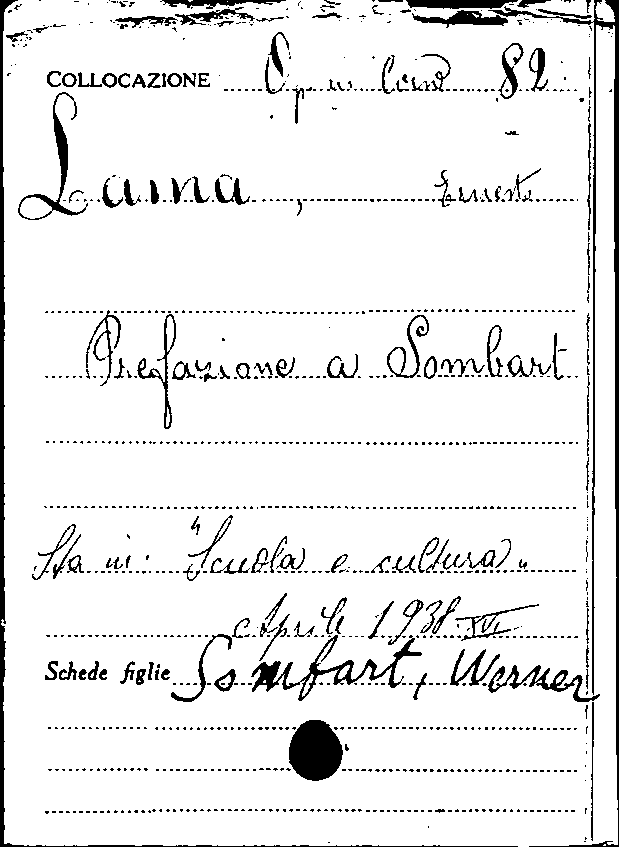 COLLOCAZIONE Op in Cons 82
Lama, Ernesto
Prefazione a Sombart
Sta in: "Scuola e cultura„
Aprile 1938-XVI
Schede figlie Sombart, Werner